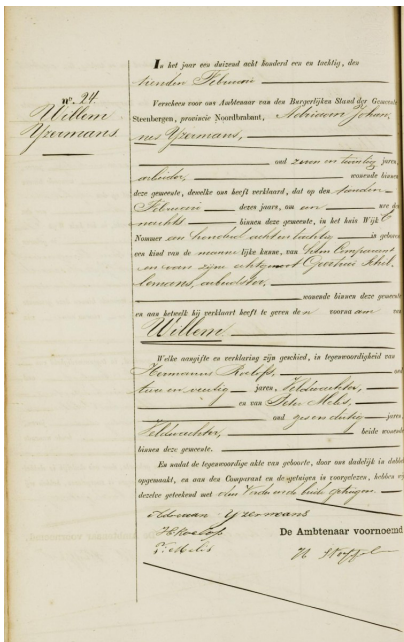 In het jaar een duizend acht honderd een en tachtig, den
tienden Februari
nº. 24.
Willem
Yzermans
Verscheen voor ons Ambtenaar van den Burgerlijken Stand der Gemeente
Steenbergen, provincie Noordbrabant, Adriaan Johan
nes Yzermans,
oud zeven en twintig jaren,
arbeider, wonende binnen
deze gemeente, dewelke ons heeft verklaard, dat op den
Februari dezes jaars, om een ure des
nachts binnen deze gemeente, in het huis Wijk C
Nummer een honderd acht en tachtig is geboren
een kind van de mannelijke kunne, van hem Comparant
en van zijne echtgenoot
arbeidster,
wonende binnen deze gemeente
en aan hetwelk hij verklaart heeft te geven den voornaam van
Willem
Welke aangifte en verklaring zijn geschied, in tegenwoordigheid van
Hermanus Roelofs, oud
jaren, Veldwachter,
en van Peter Melis,
oud zes en dertig jaren,
Veldwachter, beide wonende
binnen deze gemeente.
En nadat de tegenwoordige akte van geboorte, door ons dadelijk in dubbel
opgemaakt, en aan den Comparant en de getuigen is voorgelezen, hebben wij
dezelve geteekend met den Vader en de beide getuigen.
Adriaan Yzermans
H Roelofs
P. Melis
De Ambtenaar voornoemd